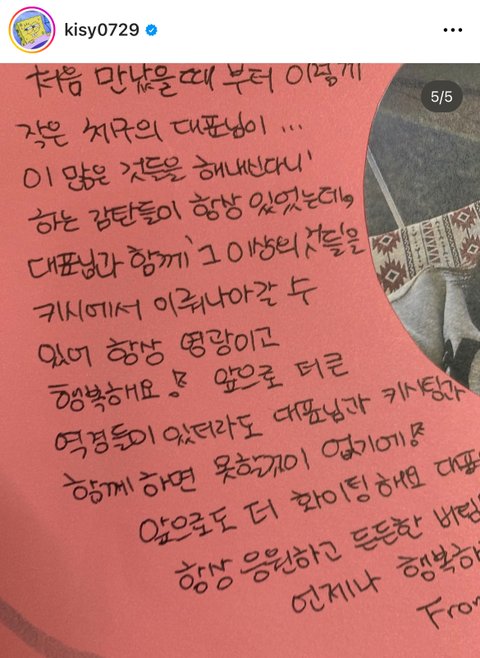 kisy0729
5/5
처음 만났을때 부터 이렇게
작은 체구의 대표님이 ...
이 많은 것들을 해내신다니'
하는 감탄들이 항상 있었는데,
대표님과 함께 '그 이상의 것들'을
키시에서 이뤄나아갈 수
있어 항상 영광이고
행복해요! 앞으로 더 큰
역경들이 있더라도 대표님과 키시팀과
함께 하면 못할것이 없기에!
앞으로도 더 화이팅해요 대표
항상 응원하고 든든한 버팀
언제나 행복하
From